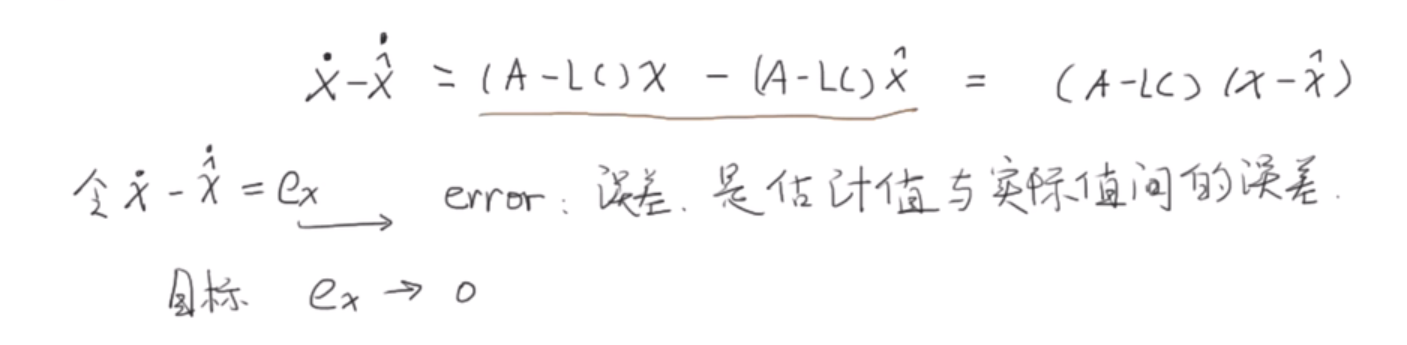 ẋ - x̂̇ = (A-LC)x - (A-LC)x̂ = (A-LC)(x-x̂)
令 ẋ - x̂̇ = eₓ → error: 误差. 是估计值与实际值间的误差.
目标 eₓ → 0